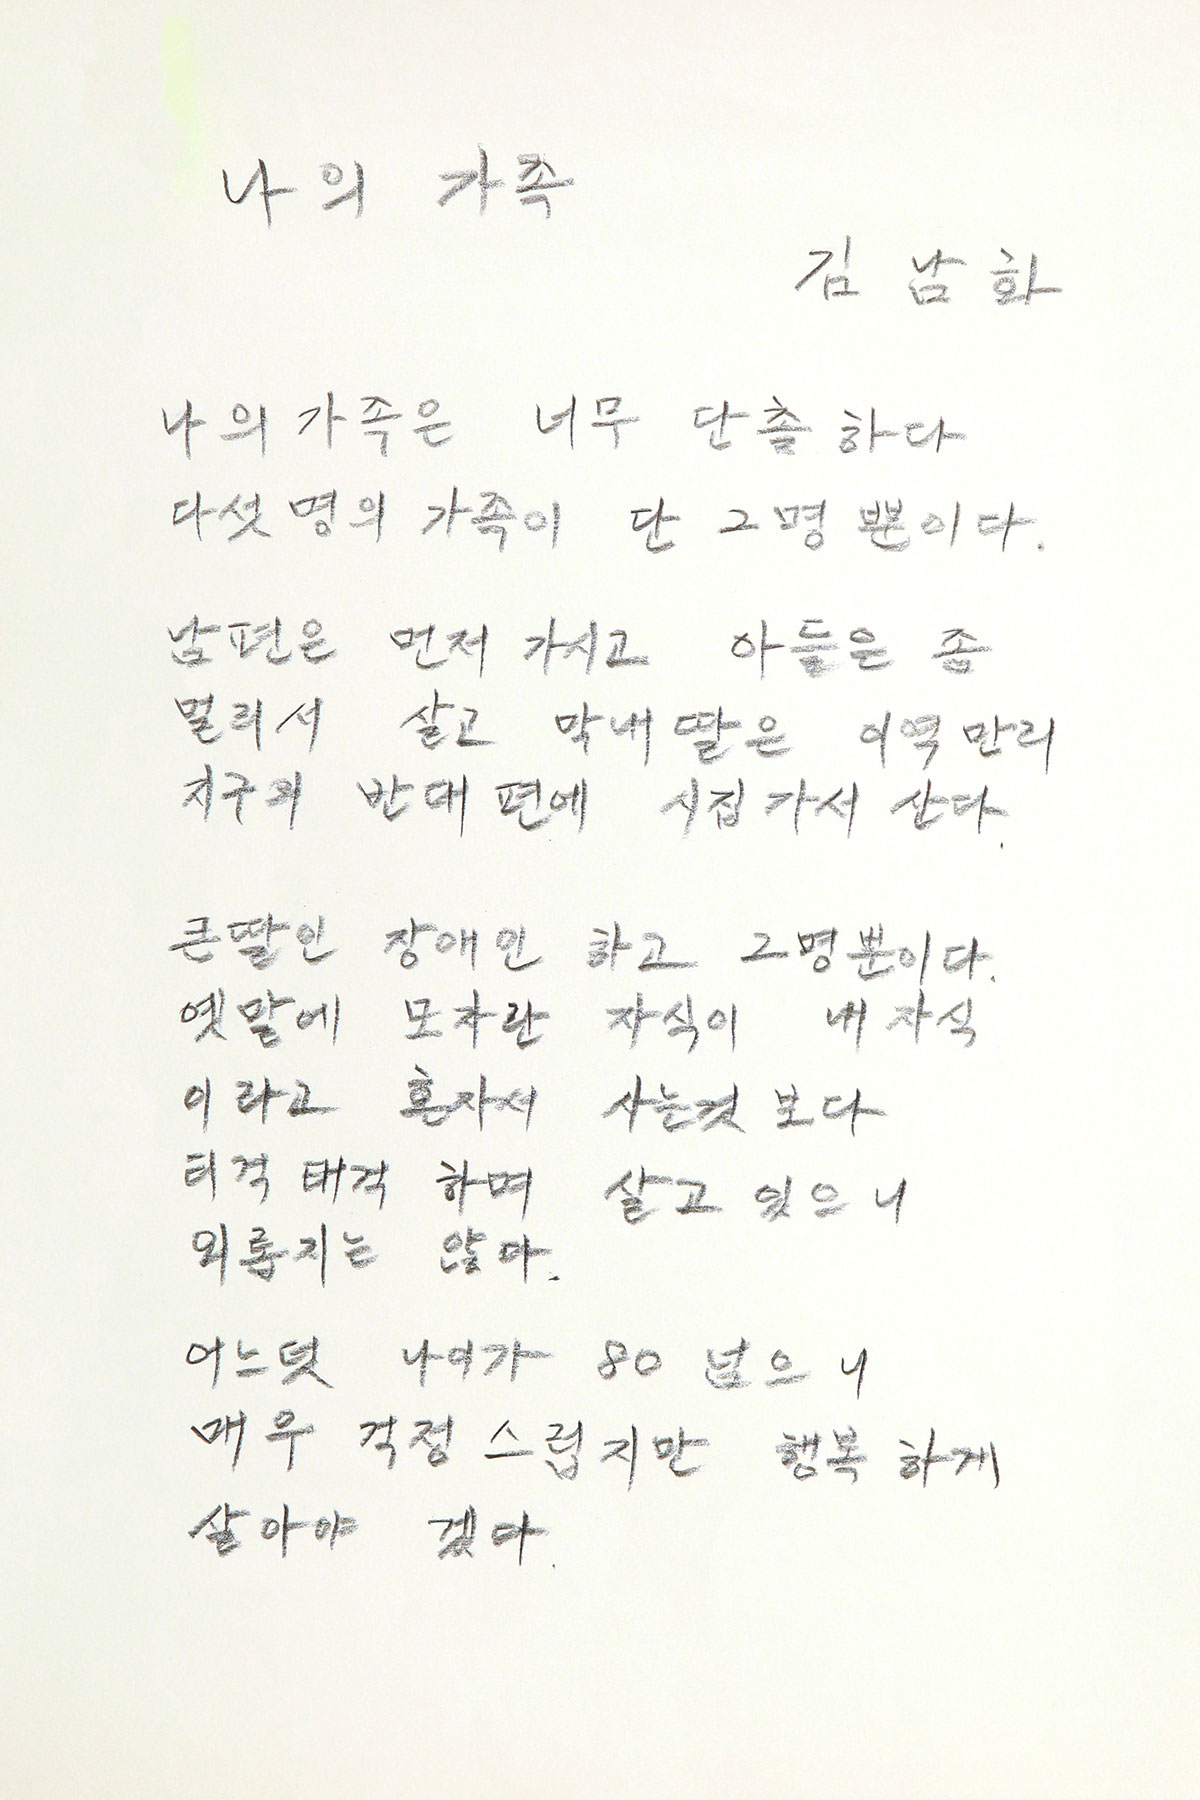 나의 가족
김남화
나의 가족은 너무 단촐하다
다섯명의 가족이 단 2명뿐이다.
남편은 먼저 가시고 아들은 좀
멀리서 살고 막내딸은 이역만리
지구의 반대편에 시집가서 산다.
큰딸인 장애인 하고 2명뿐이다.
옛말에 모자란 자식이 내 자식
이라고 혼자서 사는것 보다
티격태격 하며 살고 있으니
외롭지는 않다.
어느덧 나이가 80 넘으니
매우 걱정스럽지만 행복하게
살아야 겠다.